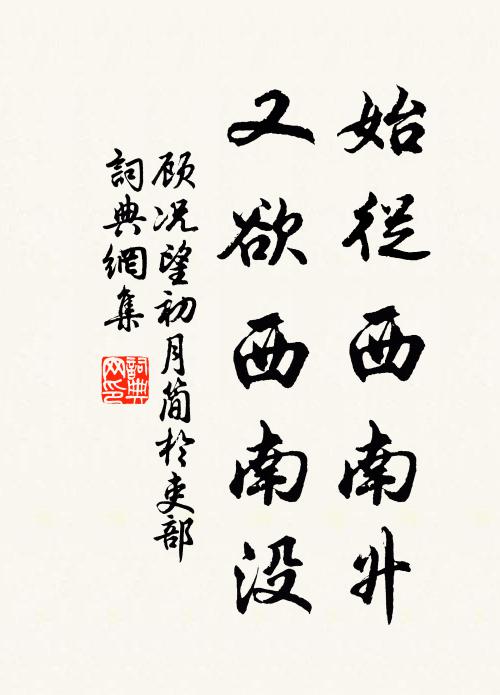 始從西南升
又欲西南没
顾况望初月简於吏部
詞典網集
詞典网印